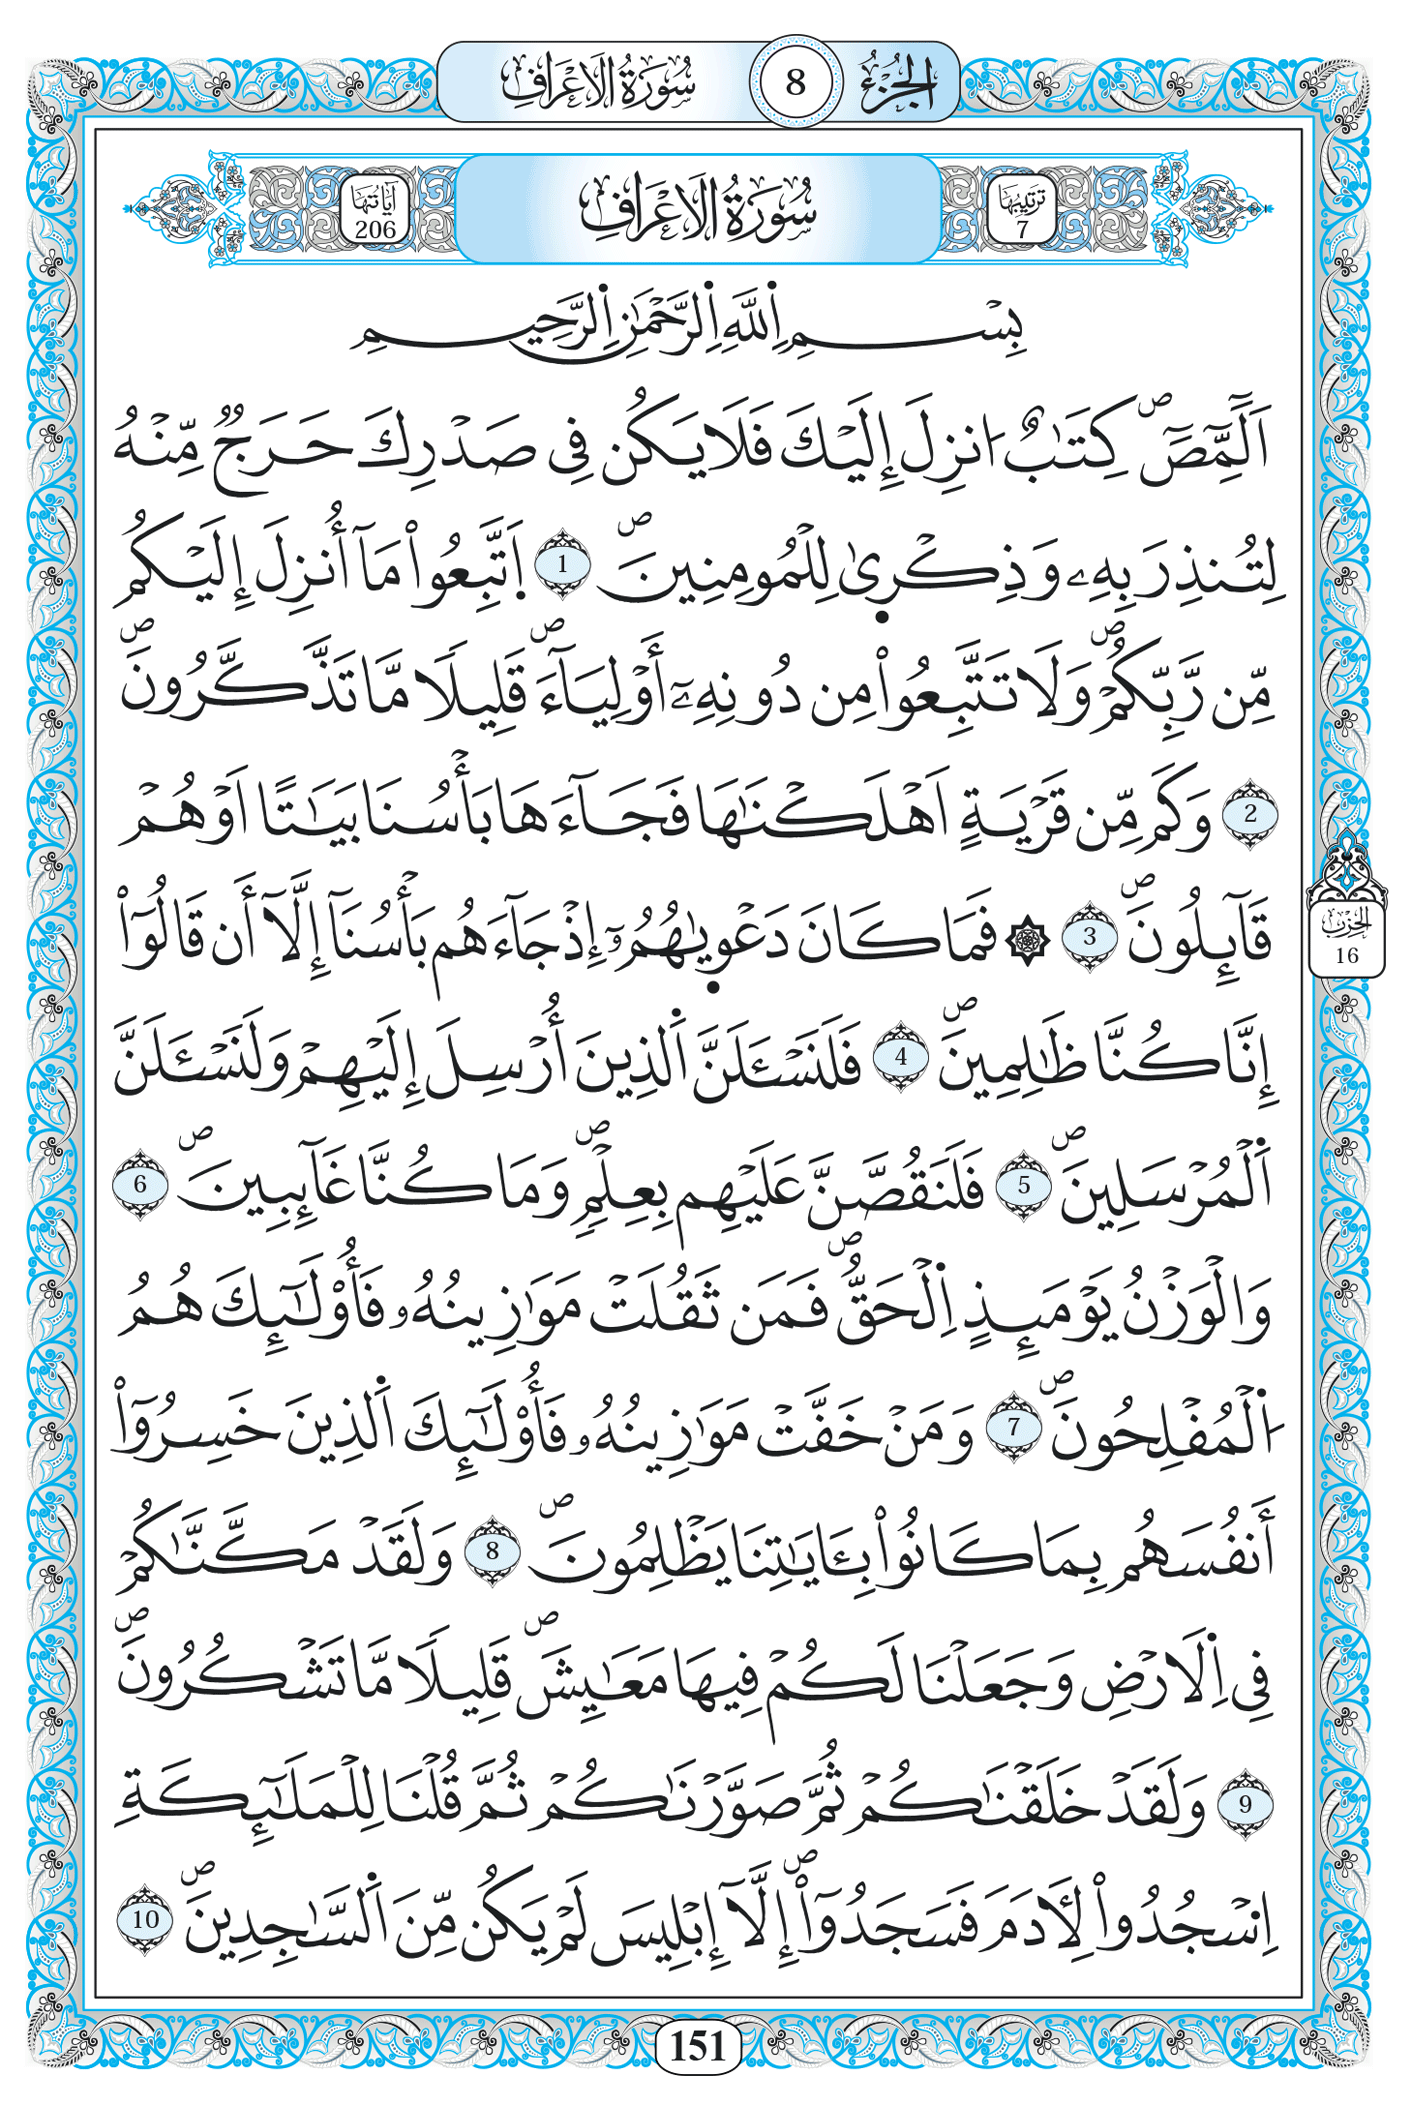 الجُزْءُ 8 سُورَةُ الَاعْرَافِ
تَرْتِيبُهَا 7 سُورَةُ الَاعْرَافِ آيَاتُهَا 206
بِسْمِ اِ۬للَّهِ اِ۬لرَّحْمَٰنِ اِ۬لرَّحِيمِ
أَلَٓمِّٓصَٓۖ كِتَٰبٌ ا۟نزِلَ إِلَيْكَ فَلَا يَكُن فِے صَدْرِكَ حَرَجٞ مِّنْهُ
لِتُنذِرَ بِهِۦ وَذِكْر۪ىٰ لِلْمُومِنِينَۖ 1 اَ۪تَّبِعُواْ مَآ أُنزِلَ إِلَيْكُم
مِّن رَّبِّكُمْۖ وَلَا تَتَّبِعُواْ مِن دُونِهِۦٓ أَوْلِيَآءَۖ قَلِيلًا مَّا تَذَّكَّرُونَۖ
2 وَكَم مِّن قَرْيَةٍ اَهْلَكْنَٰهَا فَجَآءَهَا بَأْسُنَا بَيَٰتًا اَوْ هُمْ
قَآئِلُونَۖ 3 ۞ فَمَا كَانَ دَعْو۪يٰهُمُۥٓ إِذْ جَآءَهُم بَأْسُنَآ إِلَّآ أَن قَالُوٓاْ
إِنَّا كُنَّا ظَٰلِمِينَۖ 4 فَلَنَسْـَٔلَنَّ اَ۬لذِينَ أُرْسِلَ إِلَيْهِمْ وَلَنَسْـَٔلَنَّ
اَ۬لْمُرْسَلِينَۖ 5 فَلَنَقُصَّنَّ عَلَيْهِم بِعِلْمٖۖ وَمَا كُنَّا غَآئِبِينَۖ 6
وَالْوَزْنُ يَوْمَئِذٍ اِ۬لْحَقُّۖ فَمَن ثَقُلَتْ مَوَٰزِينُهُۥ فَأُوْلَٰٓئِكَ هُمُ
اُ۬لْمُفْلِحُونَۖ 7 وَمَنْ خَفَّتْ مَوَٰزِينُهُۥ فَأُوْلَٰٓئِكَ اَ۬لذِينَ خَسِرُوٓاْ
أَنفُسَهُم بِمَا كَانُواْ بِـَٔايَٰتِنَا يَظْلِمُونَۖ 8 وَلَقَدْ مَكَّنَّٰكُمْ
فِے اِ۬لَارْضِ وَجَعَلْنَا لَكُمْ فِيهَا مَعَٰيِشَۖ قَلِيلًا مَّا تَشْكُرُونَۖ
9 وَلَقَدْ خَلَقْنَٰكُمْ ثُمَّ صَوَّرْنَٰكُمْ ثُمَّ قُلْنَا لِلْمَلَٰٓئِكَةِ
اِ۟سْجُدُواْ لِأٓدَمَ فَسَجَدُوٓاْۖ إِلَّآ إِبْلِيسَ لَمْ يَكُن مِّنَ اَ۬لسَّٰجِدِينَۖ 10
الحِزْب
16
151